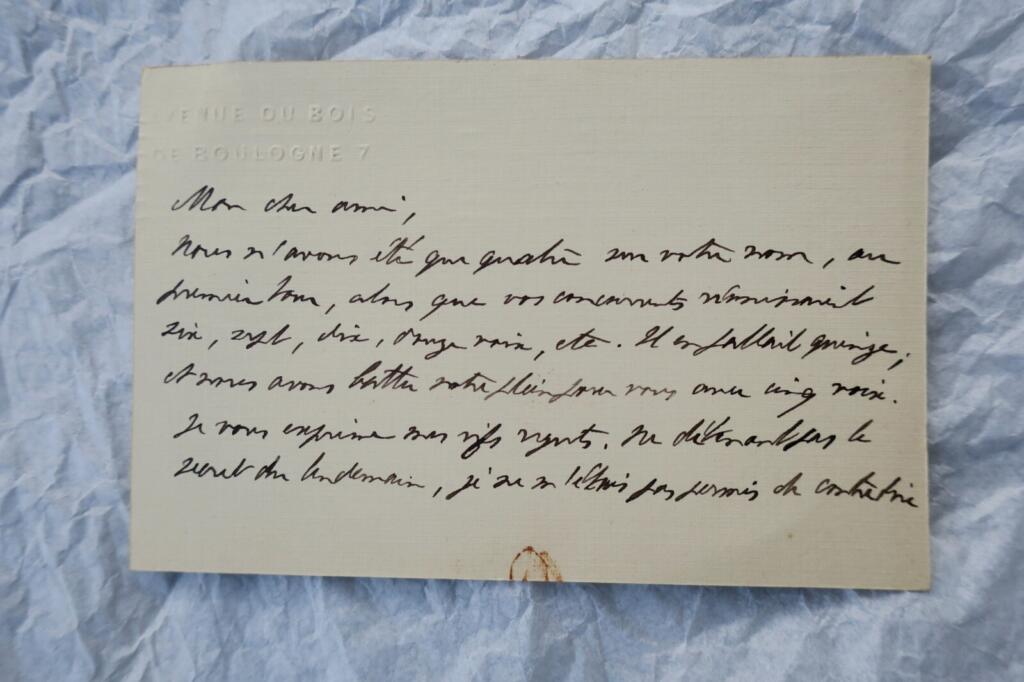 AVENUE DU BOIS
DE BOULOGNE 7
Mon cher ami,
Nous n'avons été que quatre sur votre nom, au
premier tour, alors que vos concurrents réunissaient
six, sept, dix, douze voix, etc. Il en fallait quinze ;
et nous avons battu notre plein pour vous avec cinq voix.
Je vous exprime mes vifs regrets. Ne détenant pas le
secret du lendemain, je ne m'étais pas permis de contredire